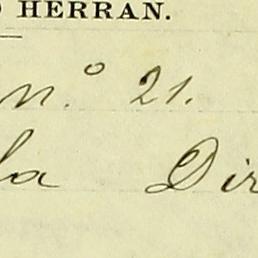 HERRAN.
n.º 21.
la Dir